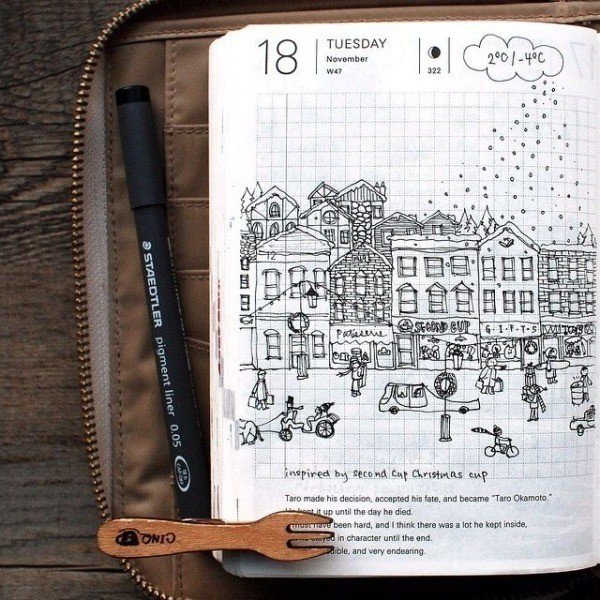 18
TUESDAY
November
W47
322
2°C / -4°C
12
Patisserie
SECOND CUP
G.I.F.T.S
TOYS
inspired by second cup christmas cup
Taro made his decision, accepted his fate, and became "Taro Okamoto."
kept it up until the day he died.
must have been hard, and I think there was a lot he kept inside,
stayed in character until the end.
and very endearing.
STAEDTLER
pigment liner 0.05